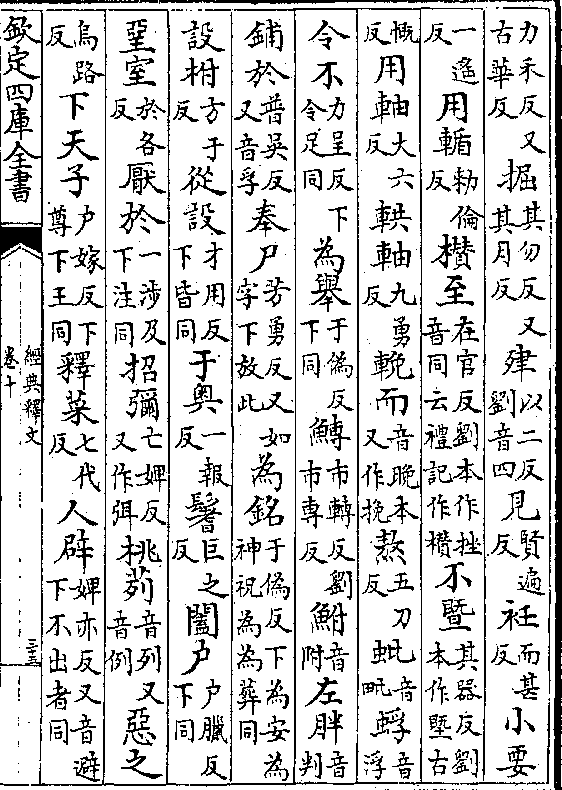 力禾反又古華反掘其勿反又其月反肂以二反劉音四見賢遍反衽而甚反小要
一遙反用輴勅倫反欑至在官反劉本作挫音同云禮記作欑不曁其器反劉本作墍古
慨反用軸大六反輁軸九勇反輓而音晚本又作挽熬五刀反蚍音毗蜉音浮
令不力呈反下令足同為舉于偽反下同鱄市轉反劉市專反鮒音附左胖音判
鋪於普吳反又音孚奉尸芳勇反又如字下放此為銘于偽反下為安為神祝為為葬同
設柎方于反從設才用反下皆同于奥一報反鬐巨之反闔户户臘反下同
堊室於各反厭於一涉及下注同招彌亡婢反又作弭桃茢音列又音例惡之
烏路反下天子户嫁反下尊下王同釋菜七代反人辟婢亦反又音避下不出者同
欽定四庫全書
經典釋文
卷十
三十三